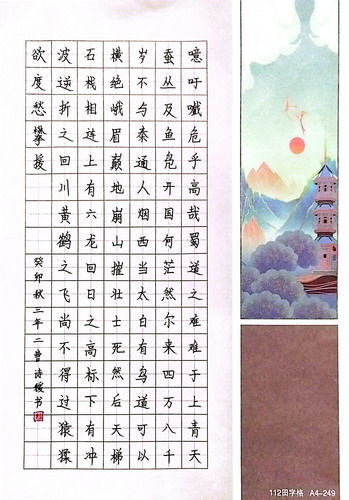 噫吁嚱危乎高哉蜀道之难难于上青天
蚕丛及鱼凫开国何茫然尔来四万八千
岁不与秦通人烟西当太白有鸟道可以
横绝峨眉巅地崩山摧壮士死然后天梯
石栈相连上有六龙回日之高标下有冲
波逆折之回川黄鹤之飞尚不得过猿猱
欲度愁攀援
癸卯秋三年二曹诗媛书
112田字格 A4-249